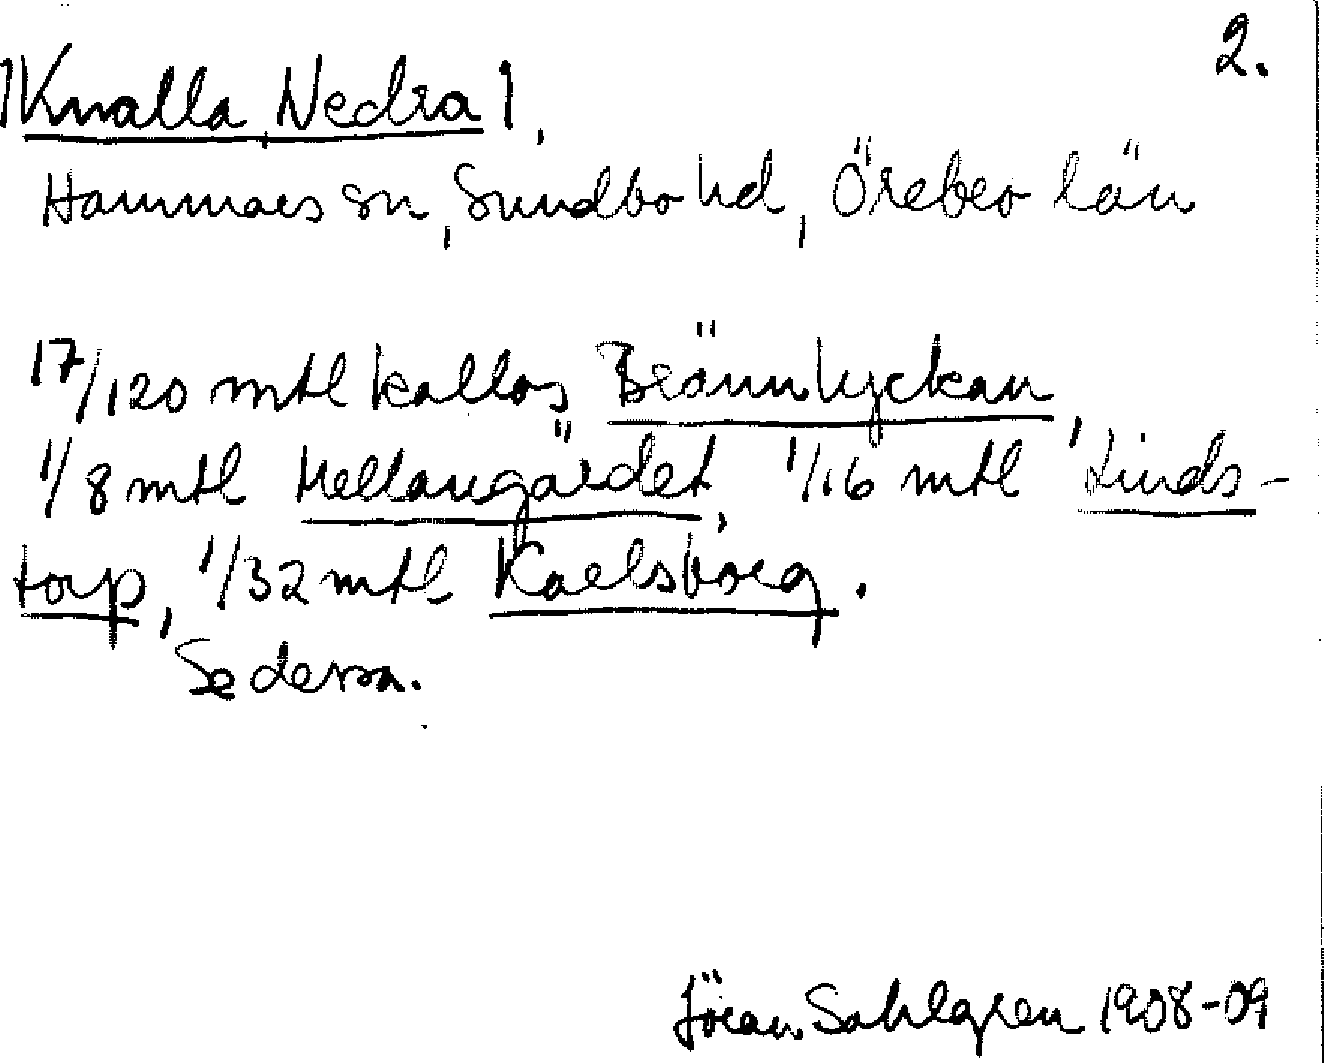 2.
|Knalla, Nedra|,
Hammars sn, Sundbo hd, Örebro län
17/120 mtl kallas Brännlyckan,
1/8 mtl Mellangärdet, 1/16 mtl Linds-
torp, 1/32 mtl Karlsborg.
Se dessa.
Jöran Sahlgren 1908-09